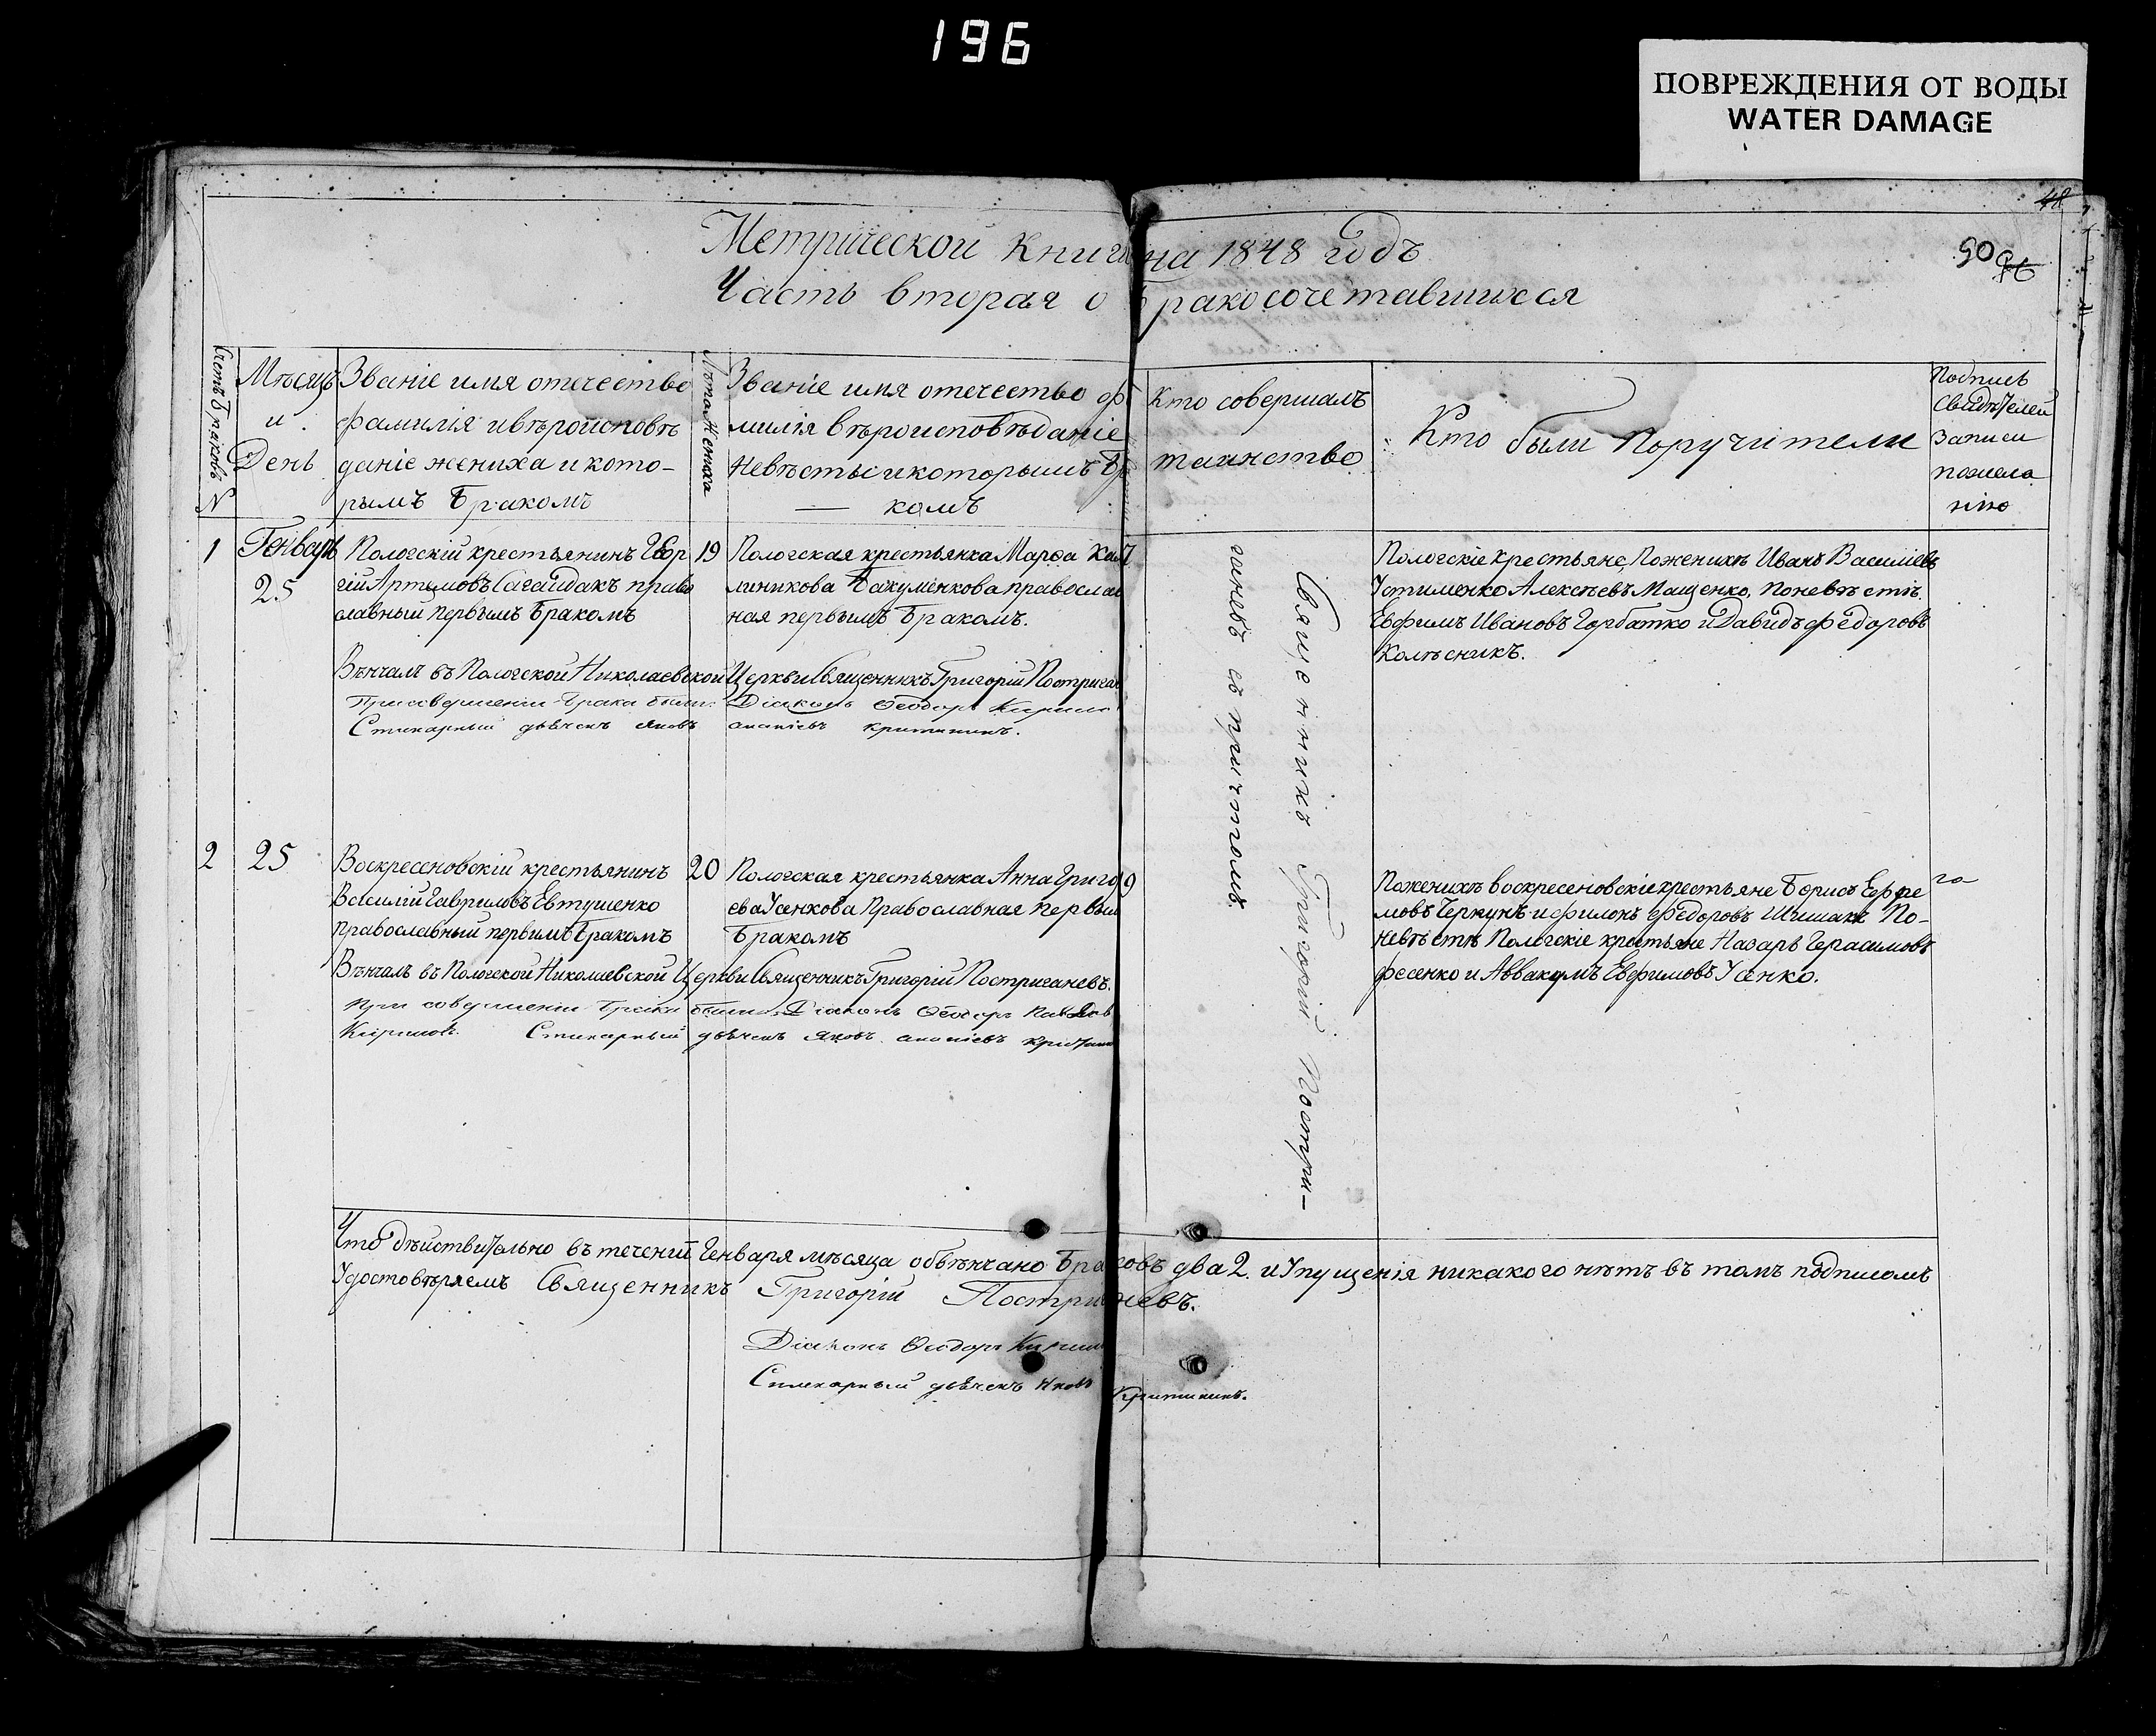 196
ПОВРЕЖДЕНИЯ ОТ ВОДЫ
WATER DAMAGE
48
Метрической Книги на 1848 годъ
50
Часть вторая о Бракосочетавшихся
Счетъ Браковъ
N
Мѣсяцъ
и
День
Званіе имя отечество
фамилія и вѣроисповѣ
даніе жениха и кото-
рымъ Бракомъ
Лѣта Жениха
Званіе имя отечество ф
милія вѣроисповѣданіе
Невѣсты и которымъ Бр
комъ
Кто совершалъ
таинство
Кто были Поручители
Подпись
Свидѣтелей
Записи
пожела
нію
1
Генварь
25
Пологскій крестьянинъ Геор
гій Артемовъ Сагайдакъ право
славный первымъ Бракомъ
19
Пологская крестьянка Марѳа Ка
линикова Бакуменкова православ
ная первымъ Бракомъ.
17
Священникъ Григорій Постри-
ганевъ съ причтомъ
Пологскіе крестьяне, Поженихѣ Иванъ Василіевъ
Устименко Алексѣевъ Мащенко, Поневѣстѣ
Евфимъ Ивановъ Горбатко и Давидъ Федоровъ
Колѣсникъ.
Вѣнчалъ въ Пологской Николаевской Церкви Священникъ Григорій Постриган
При совершеніи Брака были: Діаконъ Ѳеодоръ Кирило
Стихарный дьячекъ Яковъ ананіевъ критинин.
2
25
Воскресеновскій крестьянинъ
Василій Гавриловъ Евтушенко
Православный первымъ Бракомъ
20
Пологская крестьянка Анна Григо
ева Усенкова Православная первым
Бракомъ
19
Поженихѣ воскресеновскіе крестьяне Борисъ Ефре
мовъ Черкунъ и филонъ Федоровъ Шишака По-
невѣстѣ Пологскіе крестьяне Назаръ Герасимовъ
фесенко и Аввакумъ Евфимовъ Усенко.
Вѣнчалъ въ Пологской Николаевской Церкви Священникъ Григорій Постриганевъ.
при совершеніи Брака были: Діаконъ Ѳеодоръ
Кириловъ. Стихарный дьячекъ Яковъ ананіевъ
Что дѣйствительно въ теченіи Генваря мѣсяца обвѣнчано Браковъ два 2. и Упущенія никакого нѣтъ въ томъ подписомъ
Удостовѣряемъ Священникъ Григорій Постриганевъ.
Діаконъ Ѳеодоръ Кирил
Стихарный дьячекъ Яковъ Критининъ.